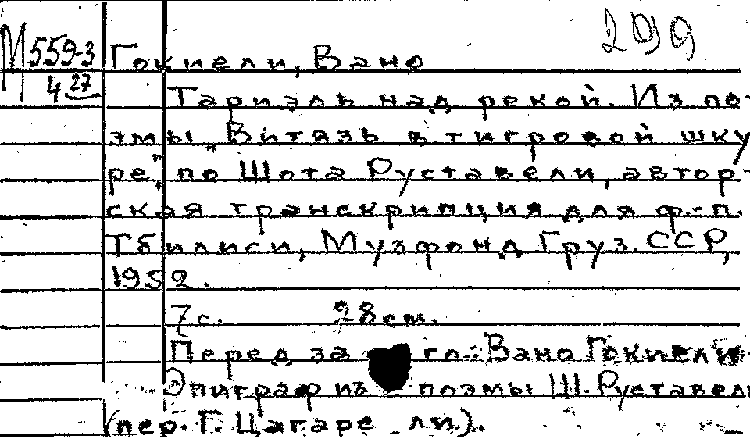 299
М 559-3 Гокиели, Вано
4 27
Тариэль над рекой. Из по-
эмы „Витязь в тигровой шку
ре", по Шота Руставели, автор-
ская транскрипция для ф.-п.
Тбилиси, Музфонд Груз. ССР,
1952.
7 с. 28 см.
Перед за гл.: Вано Гокиели
Эпиграф из поэмы Ш. Руставели
(пер. Г. Цагаре ли).